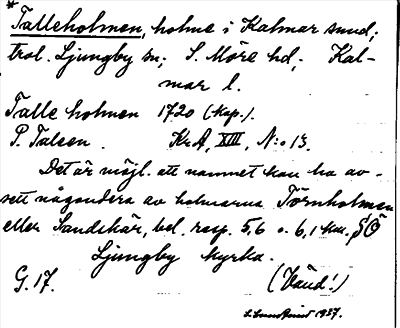 *Talleholmen, holme i Kalmar sund;
trol. Ljungby sn; S. Möre hd; Kal-
mar l.
Talle holmen 1720 (Kop.).
P. Talsen. KrA, XIII, N:o 13.
Det är möjl. att namnet kan ha av-
sett någondera av holmarna Törnholmen
eller Sandskär, bel. resp. 5,6 o. 6,1 km. SÖ
Ljungby kyrka.
G. 17. (Vänd!)
1937.